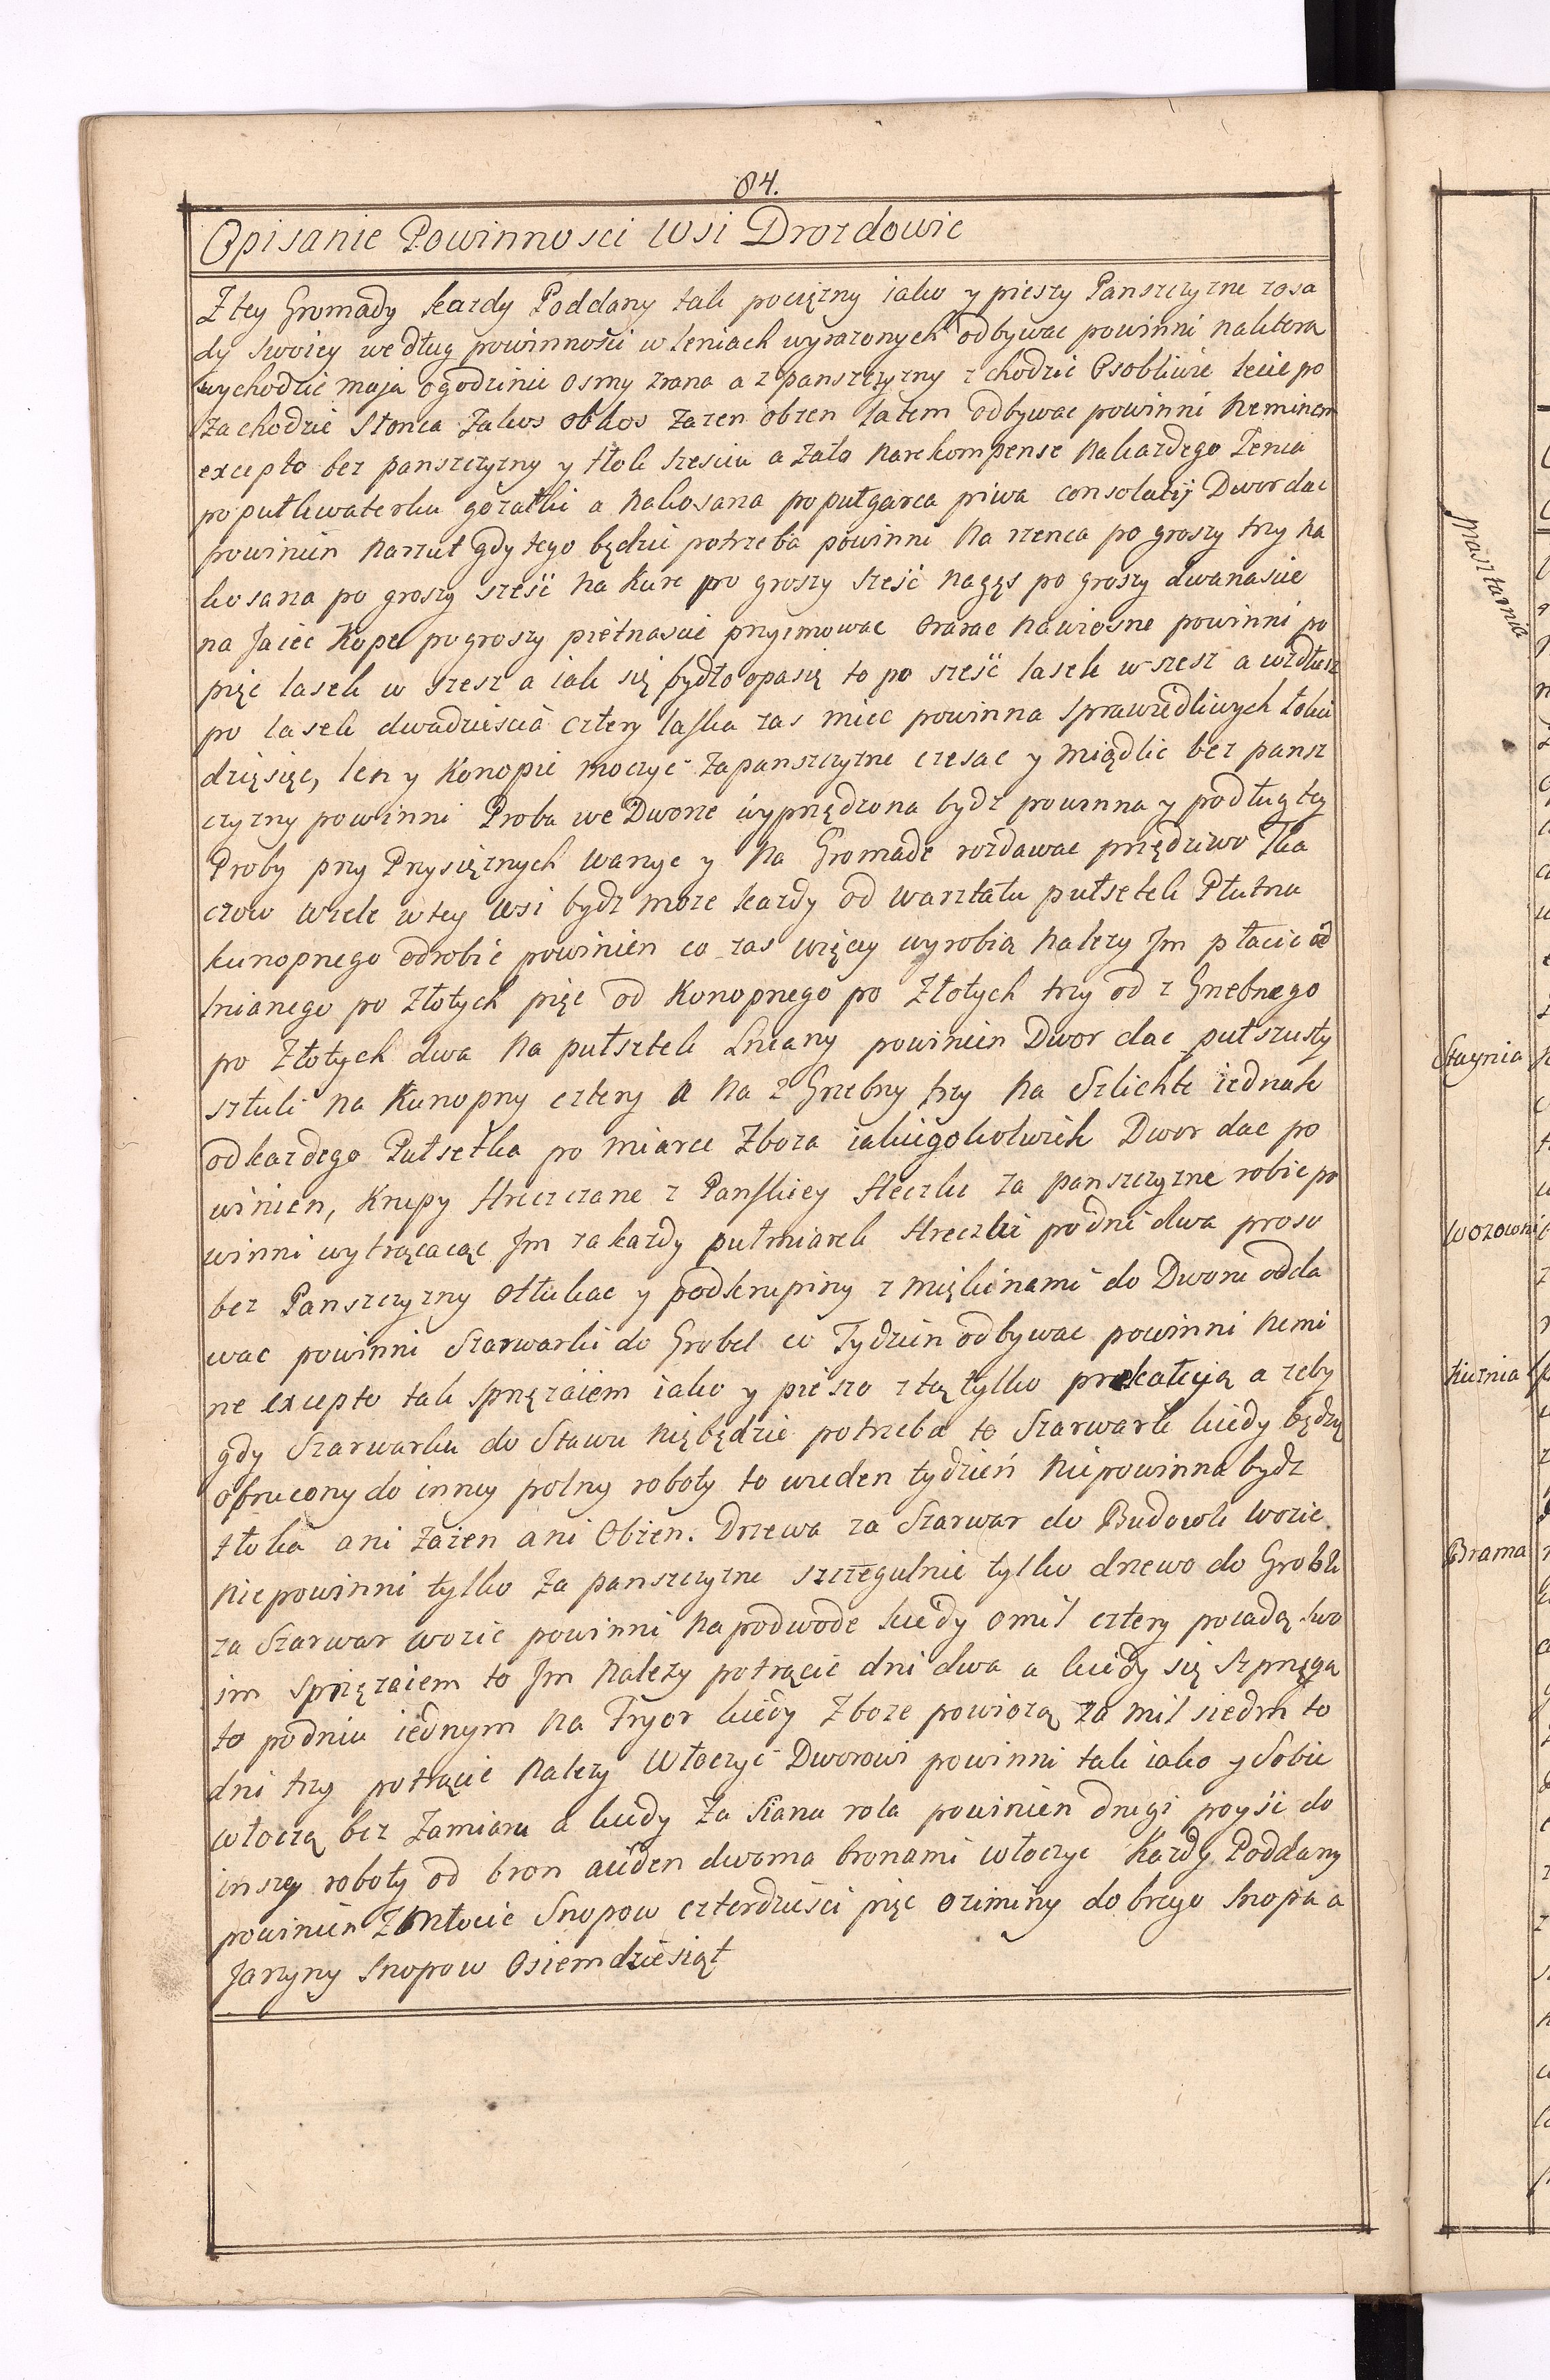 84.
Opisanie Powinnosci Wsi Drozdowic
Z tey Gromady kazdy Poddany tak pocięzny iako y pieszy Panszczyzne z osa
dy swoiey według powinności w leniach wyrazonych odbywac powinni na ktora
wychodzic maja o godzinie osmy zrana a z panszczyzny zchodzic Osobliwie lecie po
zachodzie Słonca Zakos obkos zazen obzen latem odbywac powinni Neminem
excepto bez panszczyzny y tłok szesciu a zato Narekompense Nakazdego Zenca
po pułkwaterku gorzałki a Nakosarza po pułgarca piwa consolatij Dwor dac
powinien Narzut gdy tego będzie potrzeba powinni Na rzenca po groszy trzy Na
kosarza po groszy sześć Na Kure po groszy sześć Nagęs po groszy dwanascie
na Jaiec Kope po groszy piętnascie przyimowac Ora­rac Nawiosne powinni po
pięc lasek w szesz a iak się bydło opasię to po sześć lasek w szesz a wzdłusz
po lasek dwadziescia cztery laska zas miec powinna Sprawiedliwych Łokci
dzięsięc, len y Konopie moczyc Zapanszczyzne czesac y Międlic bez pansz
czyzny powinni Proba we Dworze wyprzędzona bydz powinna y podług tey
Proby przy Przysięznych warzyc y Na Gromade rozdawac przędziwo Tka
czow wiele w tey Wsi bydz moze kazdy od warztatu pułsetek Płutna
kunopnego odrobic powinien co zas więcey wyrobią Nalezy Jm płacic od
lnianego po Złotych pięc od Konopnego po Złotych trzy od z Grzebnego
po Złotych dwa Na pułsztek Lniany powinien Dwor dac pułszusty
sztuki Na Kunopny cztery a Na zGrzebny trzy Na Szlichte iednak
od kazdego Pułsetka po Miarce Zboza iakiegokolwiek Dwor dac po
winien, Krupy Hreczczane z Panskiey Hreczki za panszczyzne robic po
winni wytrącaiąc Jm za kazdy pułmiarek Hreczki po dni dwa proso
bez Panszczyzny otłukac y podkrupiny z mięlinami do Dworu odda
wac powinni Szarwarki do Grobel co Tydzien odbywac powinni Nemi
ne excepto tak sprzęzaiem iako y pieszo z tą tylko prekatcyią a zeby
gdy Szarwarku do Stawu Niębędzie potrzeba to Szarwark kiedy będzię
obrucony do inney polny roboty to wieden tydzień Niepowinna bydz
tłoka ani Zazen ani Obzen. Drzewa za Szarwar do Budowli wozic
Niepowinni tylko Za panszczyzne szczegulnie tylko drzewo do Grobli
za Szarwar wozic powinni Na podwode kiedy o mil cztery poiadą swo
im Sprzęzaiem to Jm Nalezy potrącic dni dwa a kiedy się szprzęgą
to po dniu iednym Na Fryor kiedy Zboze powiozą za mil siedm to
dni trzy potrącic Nalezy Włoczyc Dworowi powinni tak iako y Sobie
włoczą bez Zamiaru a kiedy Za sianu rola powinien drugi poyśc do
inszey roboty od bron aieden dwoma bronami włoczyc Kazdy Poddany
powinien Zmłocic Snopow czterdziesci pięc oziminy dobrego Snopa a
Jarzyny Snopow Osiemdziesiąt
Masztarnia
Staynia
Wozownia
Kurnia
Brama